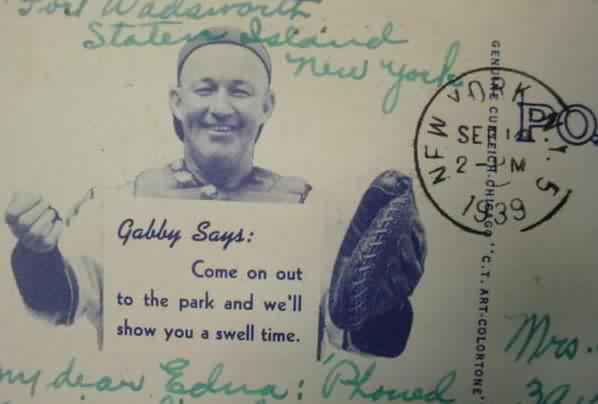 Fort Wadsworth
Staten Island
New York
NEW YORK, N.Y. 5
SEP 14
2 PM
1939
PO
GENUINE CURTEICH-CHICAGO "C.T. ART-COLORTONE"
Gabby Says:
Come on out
to the park and we'll
show you a swell time.
Mrs.
my dear Edna: Phoned